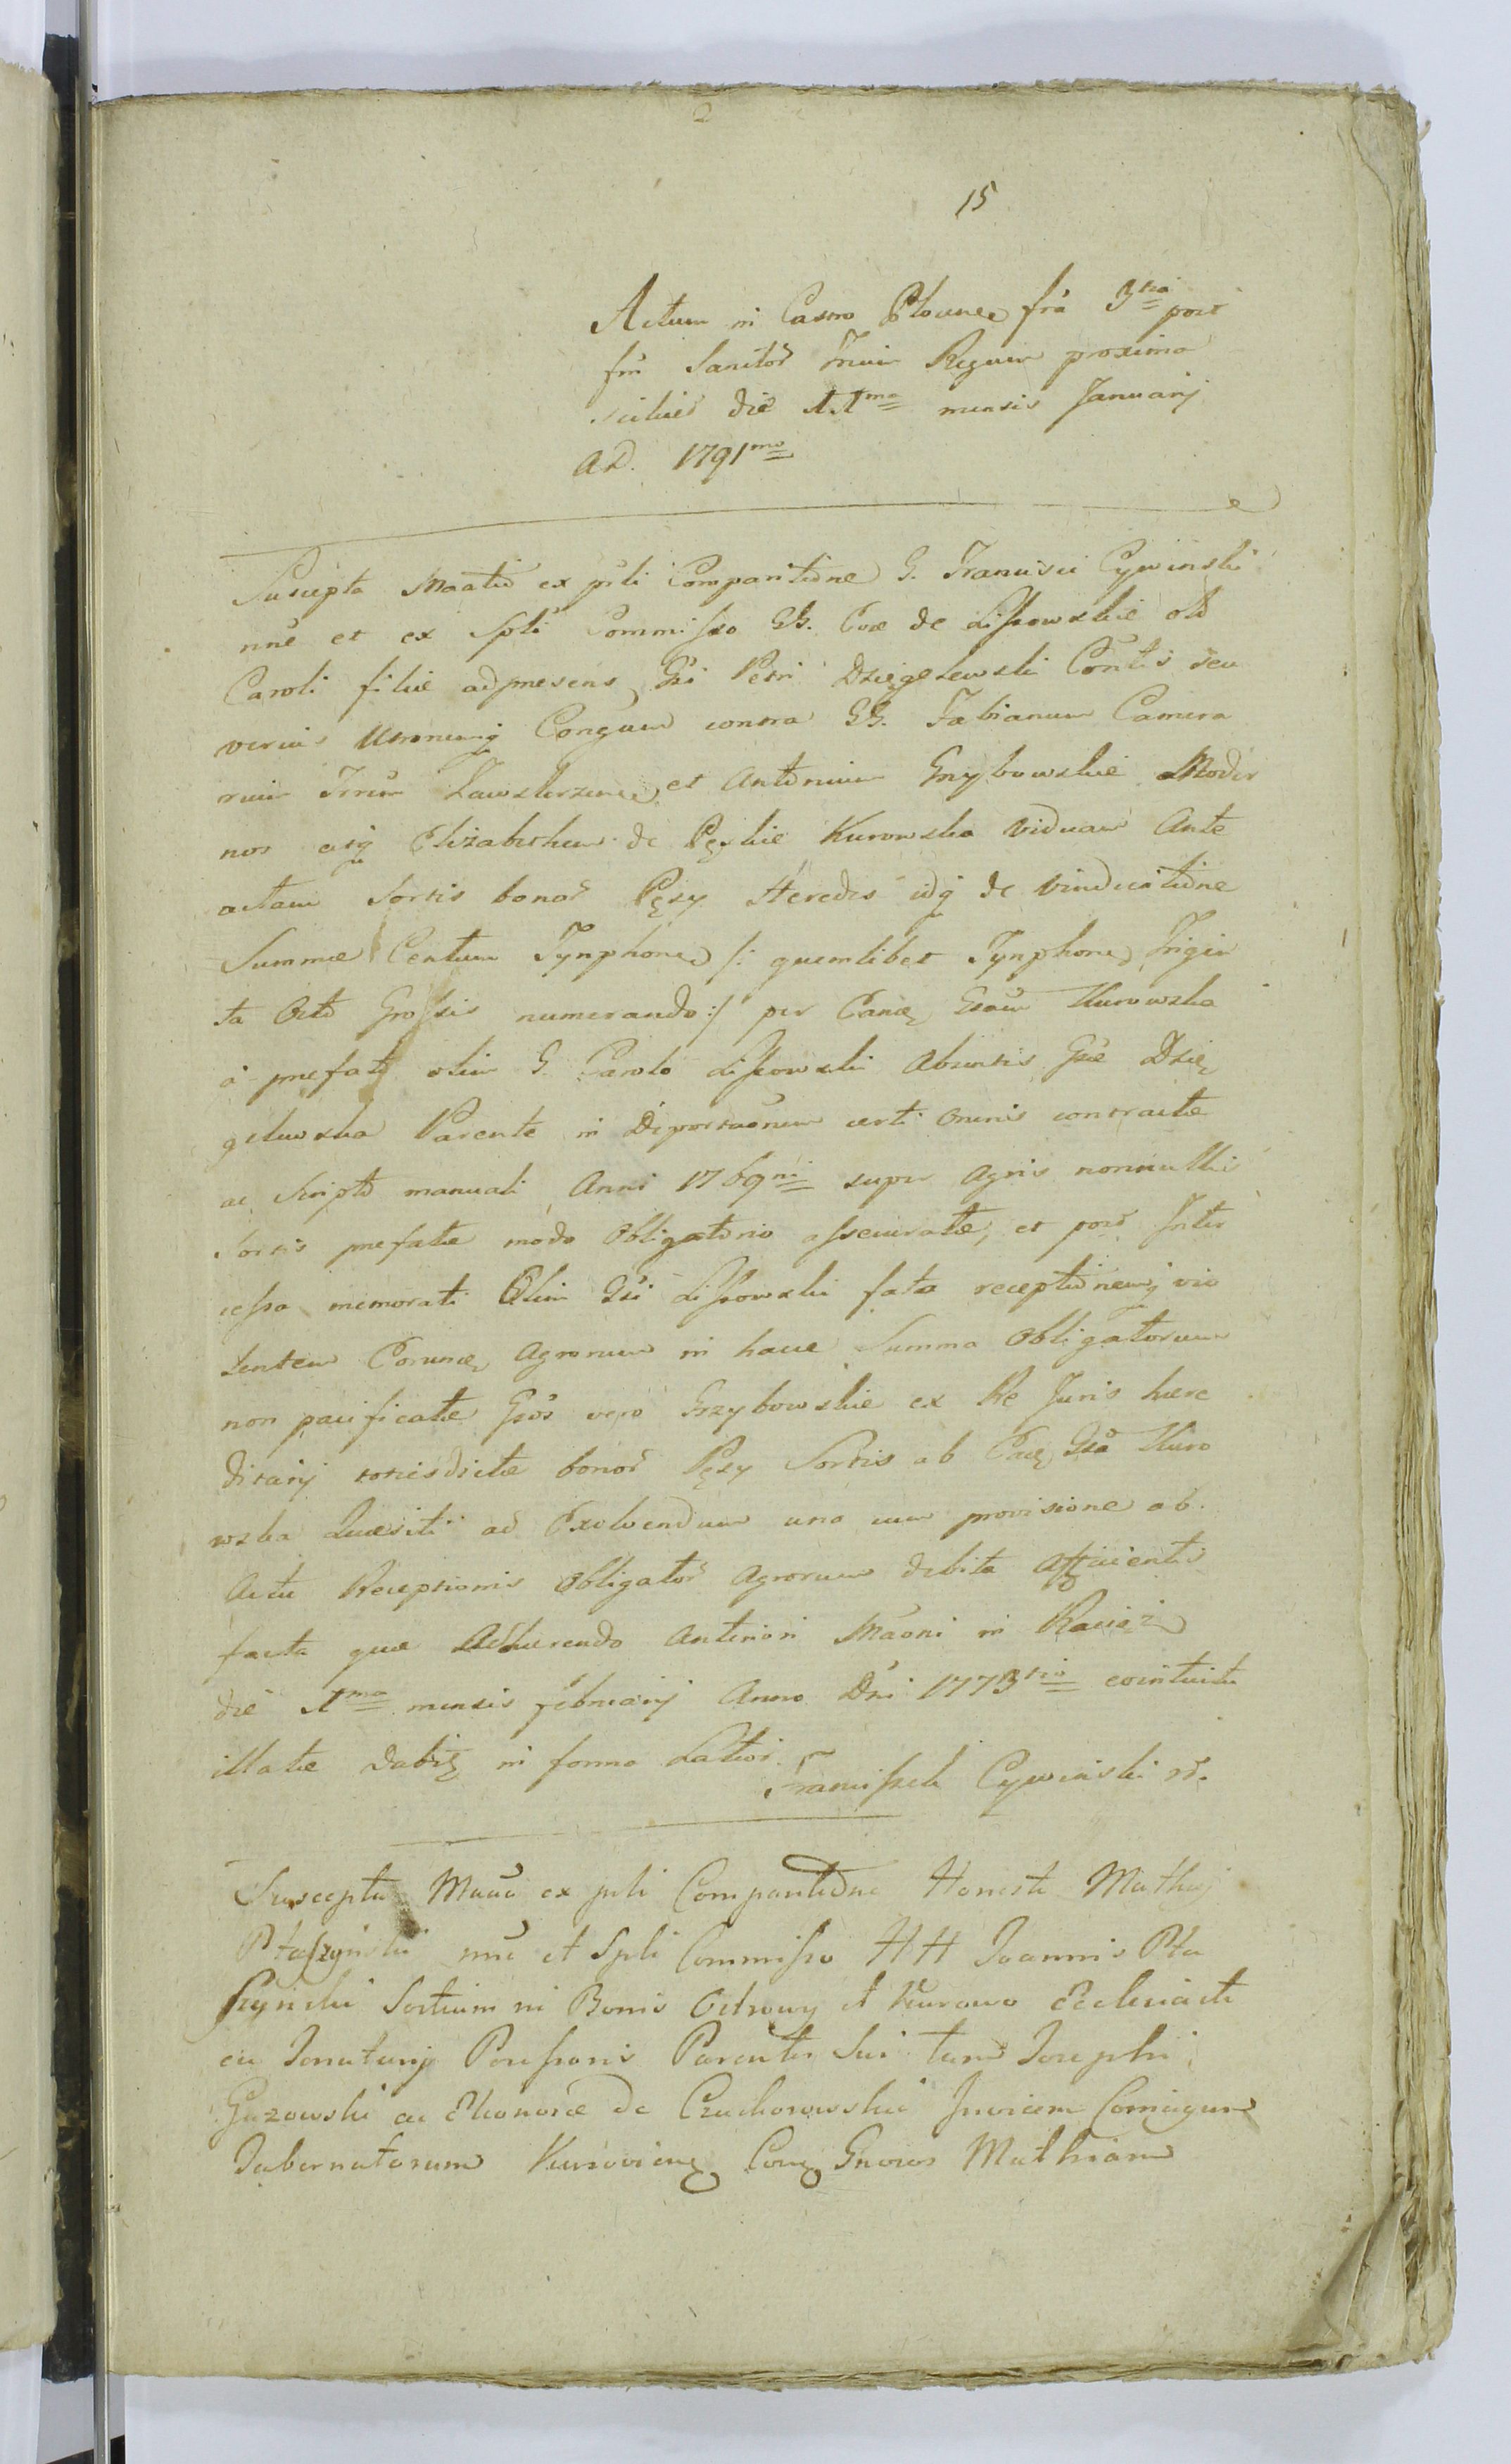 2
15
Actum in Castro Plocnen fria 3tia post
fm Sanctor Trium Regum proxima
scilicet die 11ma mensis Januarij
A.D. 1791mo
Suscepta Maatio ex psti Comparitione G. Francisci Cywinski
nne et ex Spli Commisso GG. Evæ de Lissowskie olt
Caroli filiæ adpræsens Gsi Petri Dzięgelewski Contis seu
verius Utronumq Conjgum contra GG. Fabianum Camera
rium Trrum Zawskrzynen et Antonium Grzybowskie Moder
nos atq Elizabetham de Pęskie Kurowska Viduam Ante
actam Sortis bonor Pęsy Heredes idq de Vindicatione
Summæ Centum Tynphonen /: quemlibet Tynphonen Trigin
ta Octo Grossis numerando :/ per Eandę Gsam Kurowska
à præfato olim G. Carolo Lissowski Absentis Gsæ Dzię
gelewska Parente in Deportaonem certi Oneris contractæ
ac Scripto manuali Anni 1769ni super Agris nonnullis
Sortis præfatæ modo Obligatorio assecuratæ, et post Inter
cessa memorati Olim Gsi Lissowski fata receptionemq vio
lentem Eorundę Agrorum in hacce Summa Obligatorum
non pacificatæ Gsos vero Grzybowskie ex Re Juris here
ditarij totiesdictæ bonor Pęsy Sortis ab Eadę Gsa Kuro
wska Quæsiti ad Exolvendum una cum provisione ab
Actu Receptionis Obligator Agrorum debita afficientis
facta quæ Adhærendo Anteriori Maoni in Raciąz
die 1ma mensis februarij Anno Dni 1773tio eointuitu
illatæ dabitę in forma Latiori.
Franciszek Cywinski rr.
Suscepta Maaõ ex psti Comparitione Honesti Mathei
Ptaszynski nne et Spli Commisso HH Joannis Pta
szynski Sortium in Bonis Ostrowy et Kurowo Ecclesiasti
Possessoris Parentis Sui tum Josephi
Guzowski ac Eleonoræ de Czachorowskie Invicem Conjugum
Tabernatorum Kurovien Contra Gnosos Mathiam